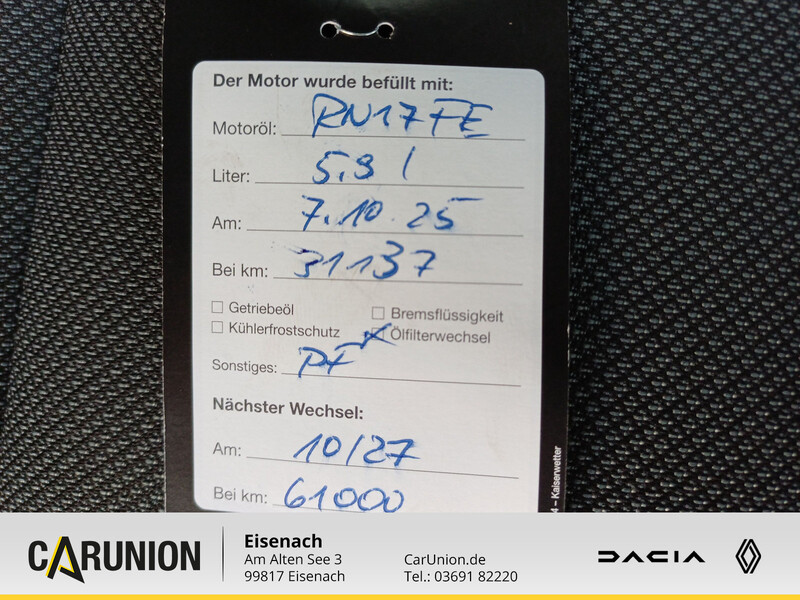 Der Motor wurde befüllt mit:
Motoröl: RN17FE
Liter: 5,9 l
Am: 7.10.25
Bei km: 31137
Getriebeöl Bremsflüssigkeit
Kühlerfrostschutz Ölfilterwechsel
Sonstiges: PF
Nächster Wechsel:
Am: 10/27
Bei km: 61000
4 – Kaiserwetter
CARUNION
Eisenach
Am Alten See 3
99817 Eisenach
CarUnion.de
Tel.: 03691 82220
DACIA